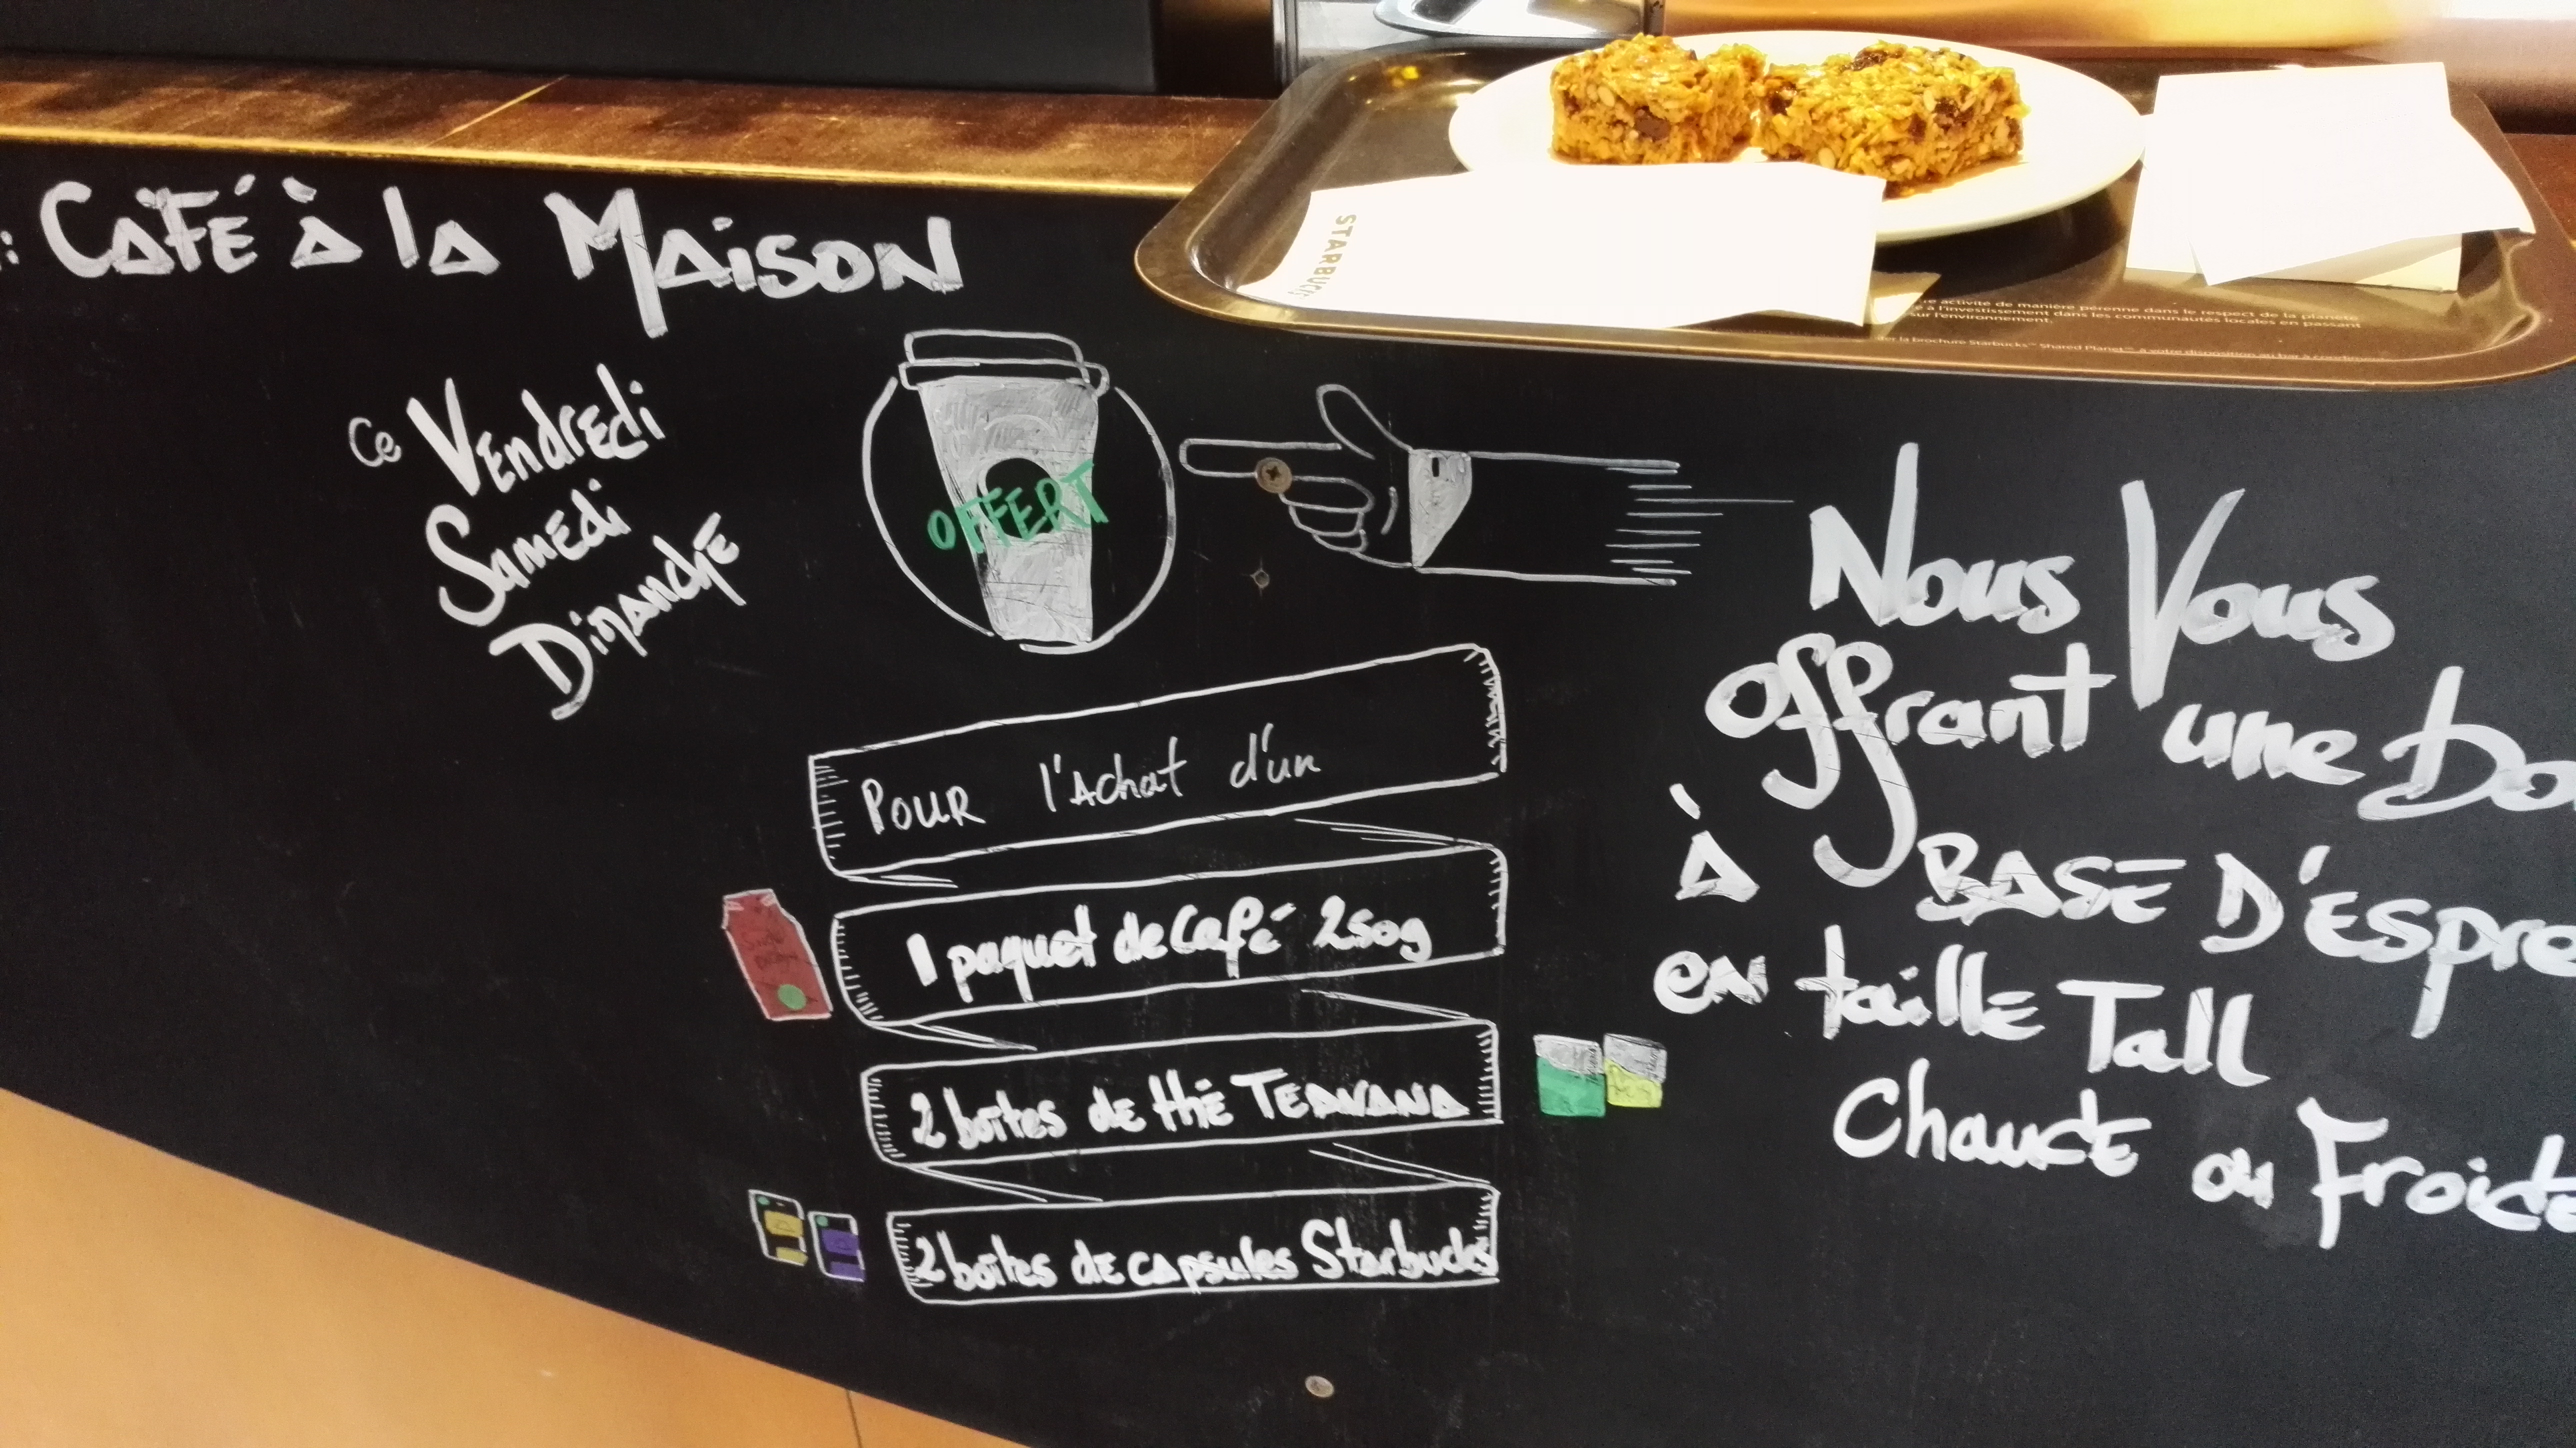 : Café à la Maison
Ce Vendredi
Samedi
Dimanche
OFFERT
POUR l'Achat d'un
1 paquet de café 250g
2 boîtes de thé TEAVANA
2 boîtes de capsules Starbucks
Nous Vous
offrant une Bo
À BASE D'Espre
en taille Tall
Chaude ou Froide
STARBUCKS
activité de manière pérenne dans le respect de la planète
à l'investissement dans les communautés locales en passant
l'environnement.
la brochure Starbucks™ Shared Planet™ à votre disposition au bar à